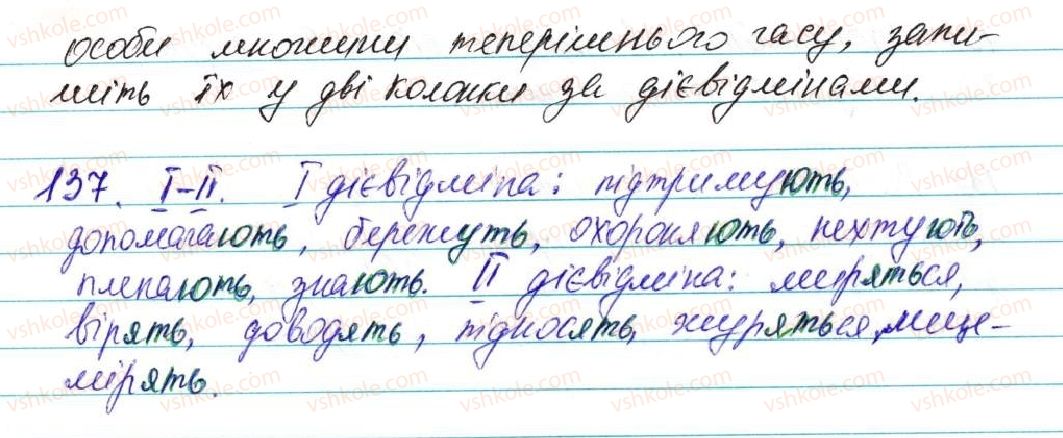 особи множини теперішнього часу, запи-
шіть їх у дві колонки за дієвідмінами.
137. I-II. I дієвідміна: підтримують,
допомагають, бережуть, охороняють, нехтують,
плекають, знають. II дієвідміна: миряться,
вірять, доводять, підносять, журяться, лице-
мірять.